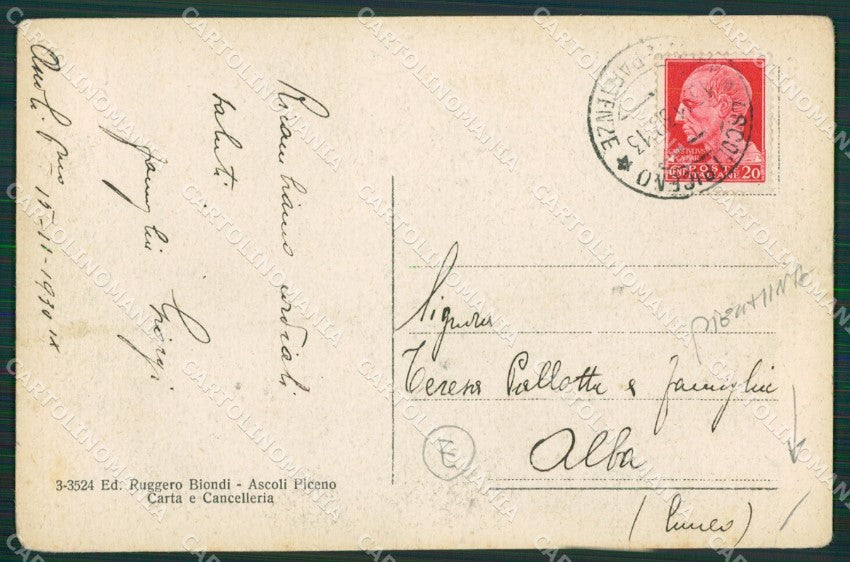 Ascoli Piceno 15-11-1930 IX
Ricambiamo cordiali
saluti
famiglia Giorgi
3-3524 Ed. Ruggero Biondi - Ascoli Piceno
Carta e Cancelleria
ASCOLI PICENO
PARTENZE
POSTE
ITALIANE 20
Signora
Teresa Pallotta e famiglia
Alba
(Cuneo)
E
CARTOLINOMANIA